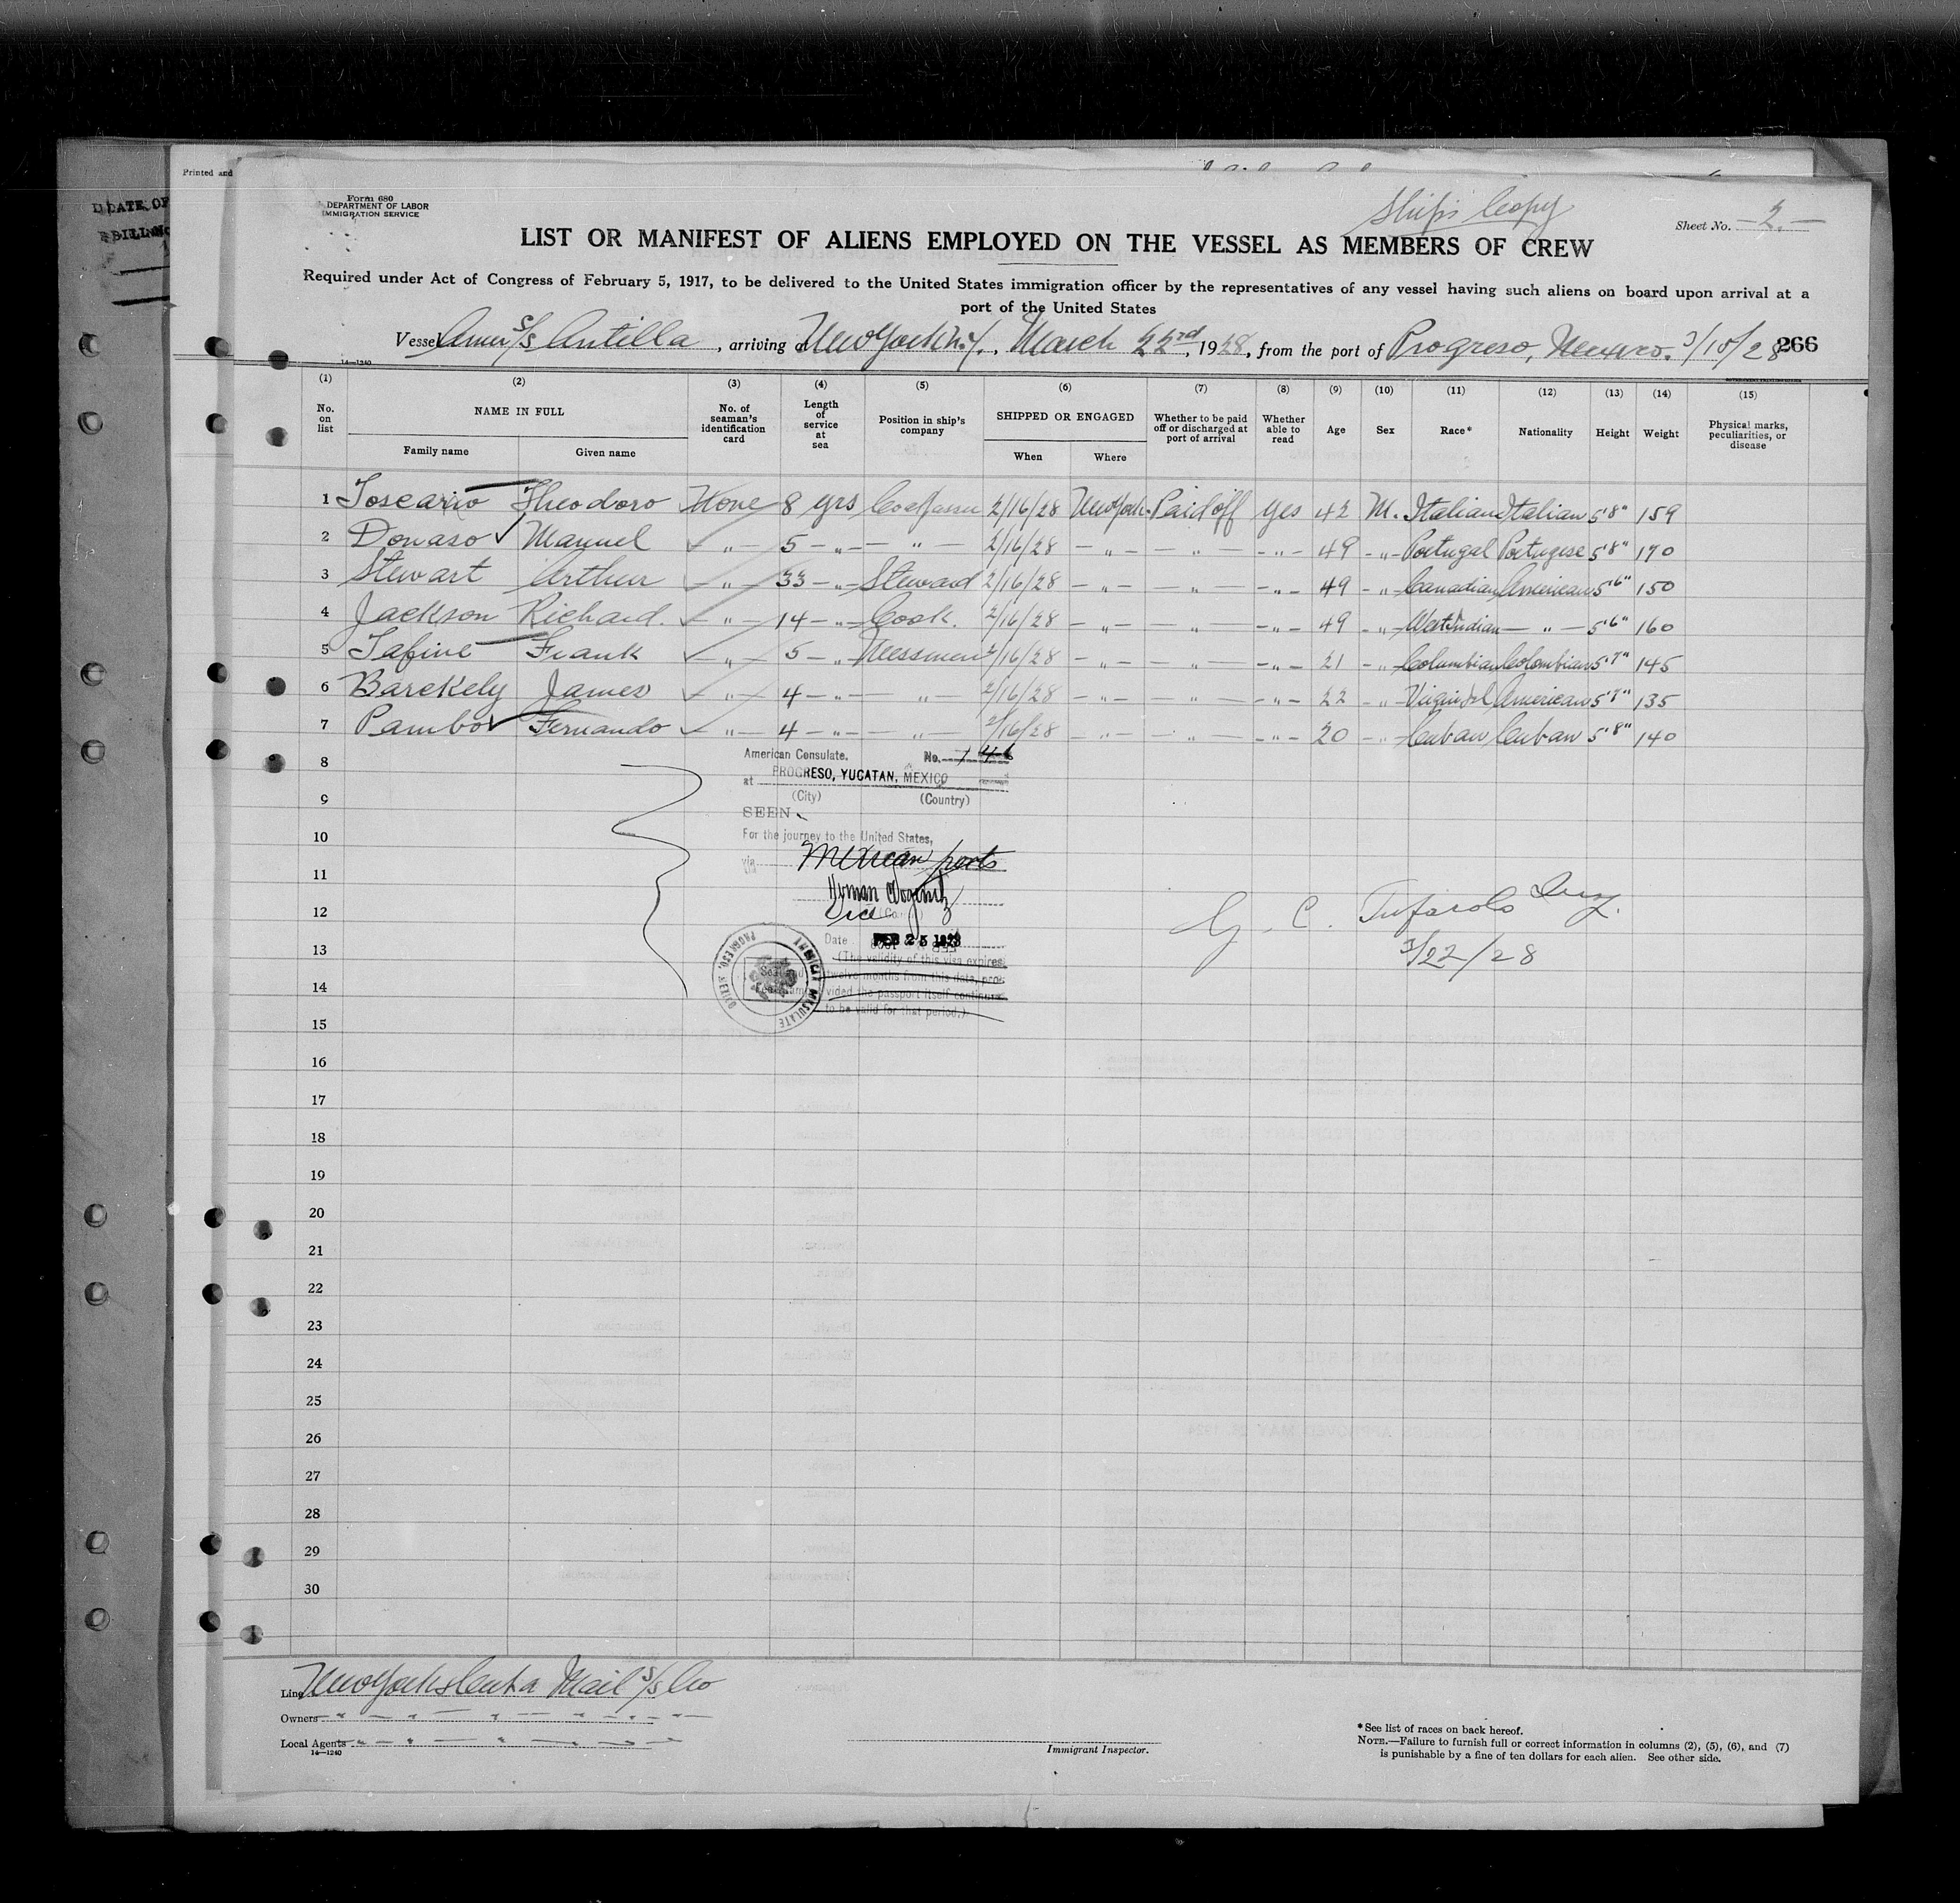 Printed and
DATE OF
Form 680
DEPARTMENT OF LABOR
IMMIGRATION SERVICE
Ship's Copy
Sheet No. -2.-
LIST OR MANIFEST OF ALIENS EMPLOYED ON THE VESSEL AS MEMBERS OF CREW
Required under Act of Congress of February 5, 1917, to be delivered to the United States immigration officer by the representatives of any vessel having such aliens on board upon arrival at a
port of the United States
Vessel Amer S/S Antilla, arriving at New York N.Y., March 22nd, 1928, from the port of Progreso, Mexico. 3/15/28
266
14-1240
(1) (2) (3) (4) (5) (6) (7) (8) (9) (10) (11) (12) (13) (14) (15)
No. on list NAME IN FULL No. of seaman's identification card Length of service at sea Position in ship's company SHIPPED OR ENGAGED Whether to be paid off or discharged at port of arrival Whether able to read Age Sex Race* Nationality Height Weight Physical marks, peculiarities, or disease
Family name Given name When Where
1 Theodoro None 8 yrs 2/16/28 New York Paid off yes 42 M. Italian Italian 5'8" 159
2 Donaso Manuel - " - 5 - " - - " - 2/16/28 - " - - " - - " - 49 - " - Portugal Portugese 5'8" 170
3 Stewart Arthur - " - 33 - " - Steward 2/16/28 - " - - " - - " - 49 - " - Canadian American 5'6" 150
4 Jackson Richard. - " - 14 - " - Cook. 2/16/28 - " - - " - - " - 49 - " - West Indian - " - 5'6" 160
5 Frank - " - 5 - " - Messmen 2/16/28 - " - - " - - " - 21 - " - Columbian Colombian 5'7" 145
6 Barekely James - " - 4 - " - - " - 2/16/28 - " - - " - - " - 22 - " - Virgin Isl American 5'7" 135
7 Pambo Fernando - " - 4 - " - - " - 2/16/28 - " - - " - - " - 20 - " - Cuban Cuban 5'8" 140
8
American Consulate, No.
at PROGRESO, YUCATAN, MEXICO
9
(City) (Country)
SEEN
10
For the journey to the United States,
via Mexican ports
11
12
Vice
G. C. Tufarolo Insp.
Date FEB 25 1928
3/22/28
13
(The validity of this visa expires
twelve months from this date, pro-
14
vided the passport itself continues
to be valid for that period.)
15
16
17
18
19
20
21
22
23
24
25
26
27
28
29
30
Line New York & Cuba Mail S/S Co
Owners - " - " - " - " -
Local Agents - " - " - " - " -
14-1240
Immigrant Inspector.
*See list of races on back hereof.
NOTE.—Failure to furnish full or correct information in columns (2), (5), (6), and (7)
is punishable by a fine of ten dollars for each alien. See other side.